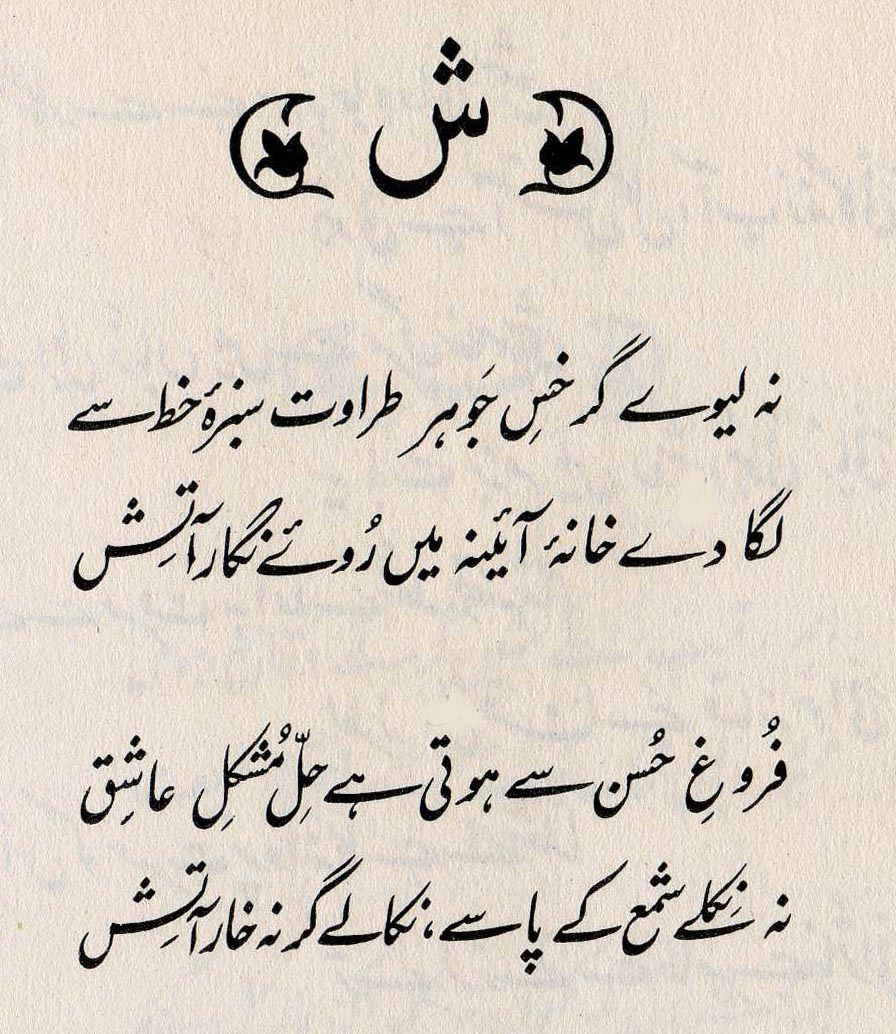 ش
نہ لیوے گر خسِ جَوہر طراوت سبزۂ خط سے
لگا دے خانۂ آئینہ میں رُوئے نگار آتِش
فُروغِ حُسن سے ہوتی ہے حلِّ مُشکلِ عاشِق
نہ نِکلے شمع کے پا سے، نکالے گر نہ خار آتِش